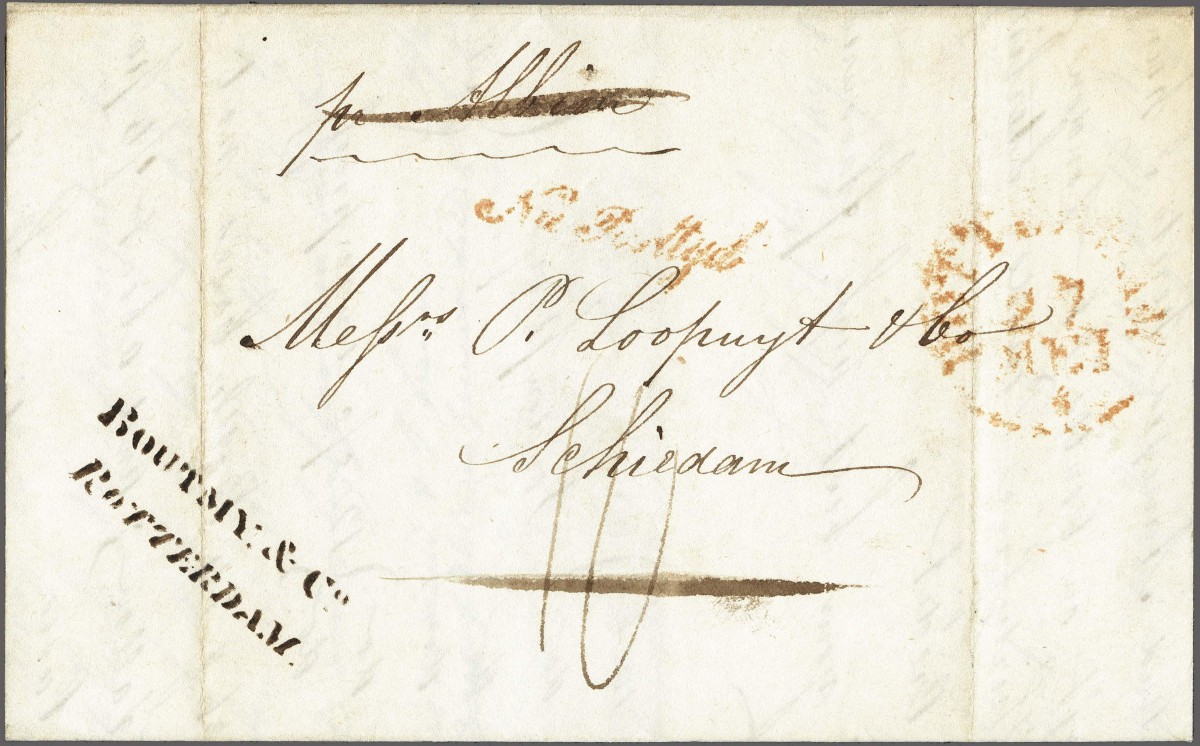 pr. Albion
Na Posttyd
Messrs P. Loopuyt & Co
27
MEI
Schiedam
10
BOUTMY. & Co.
ROTTERDAM.